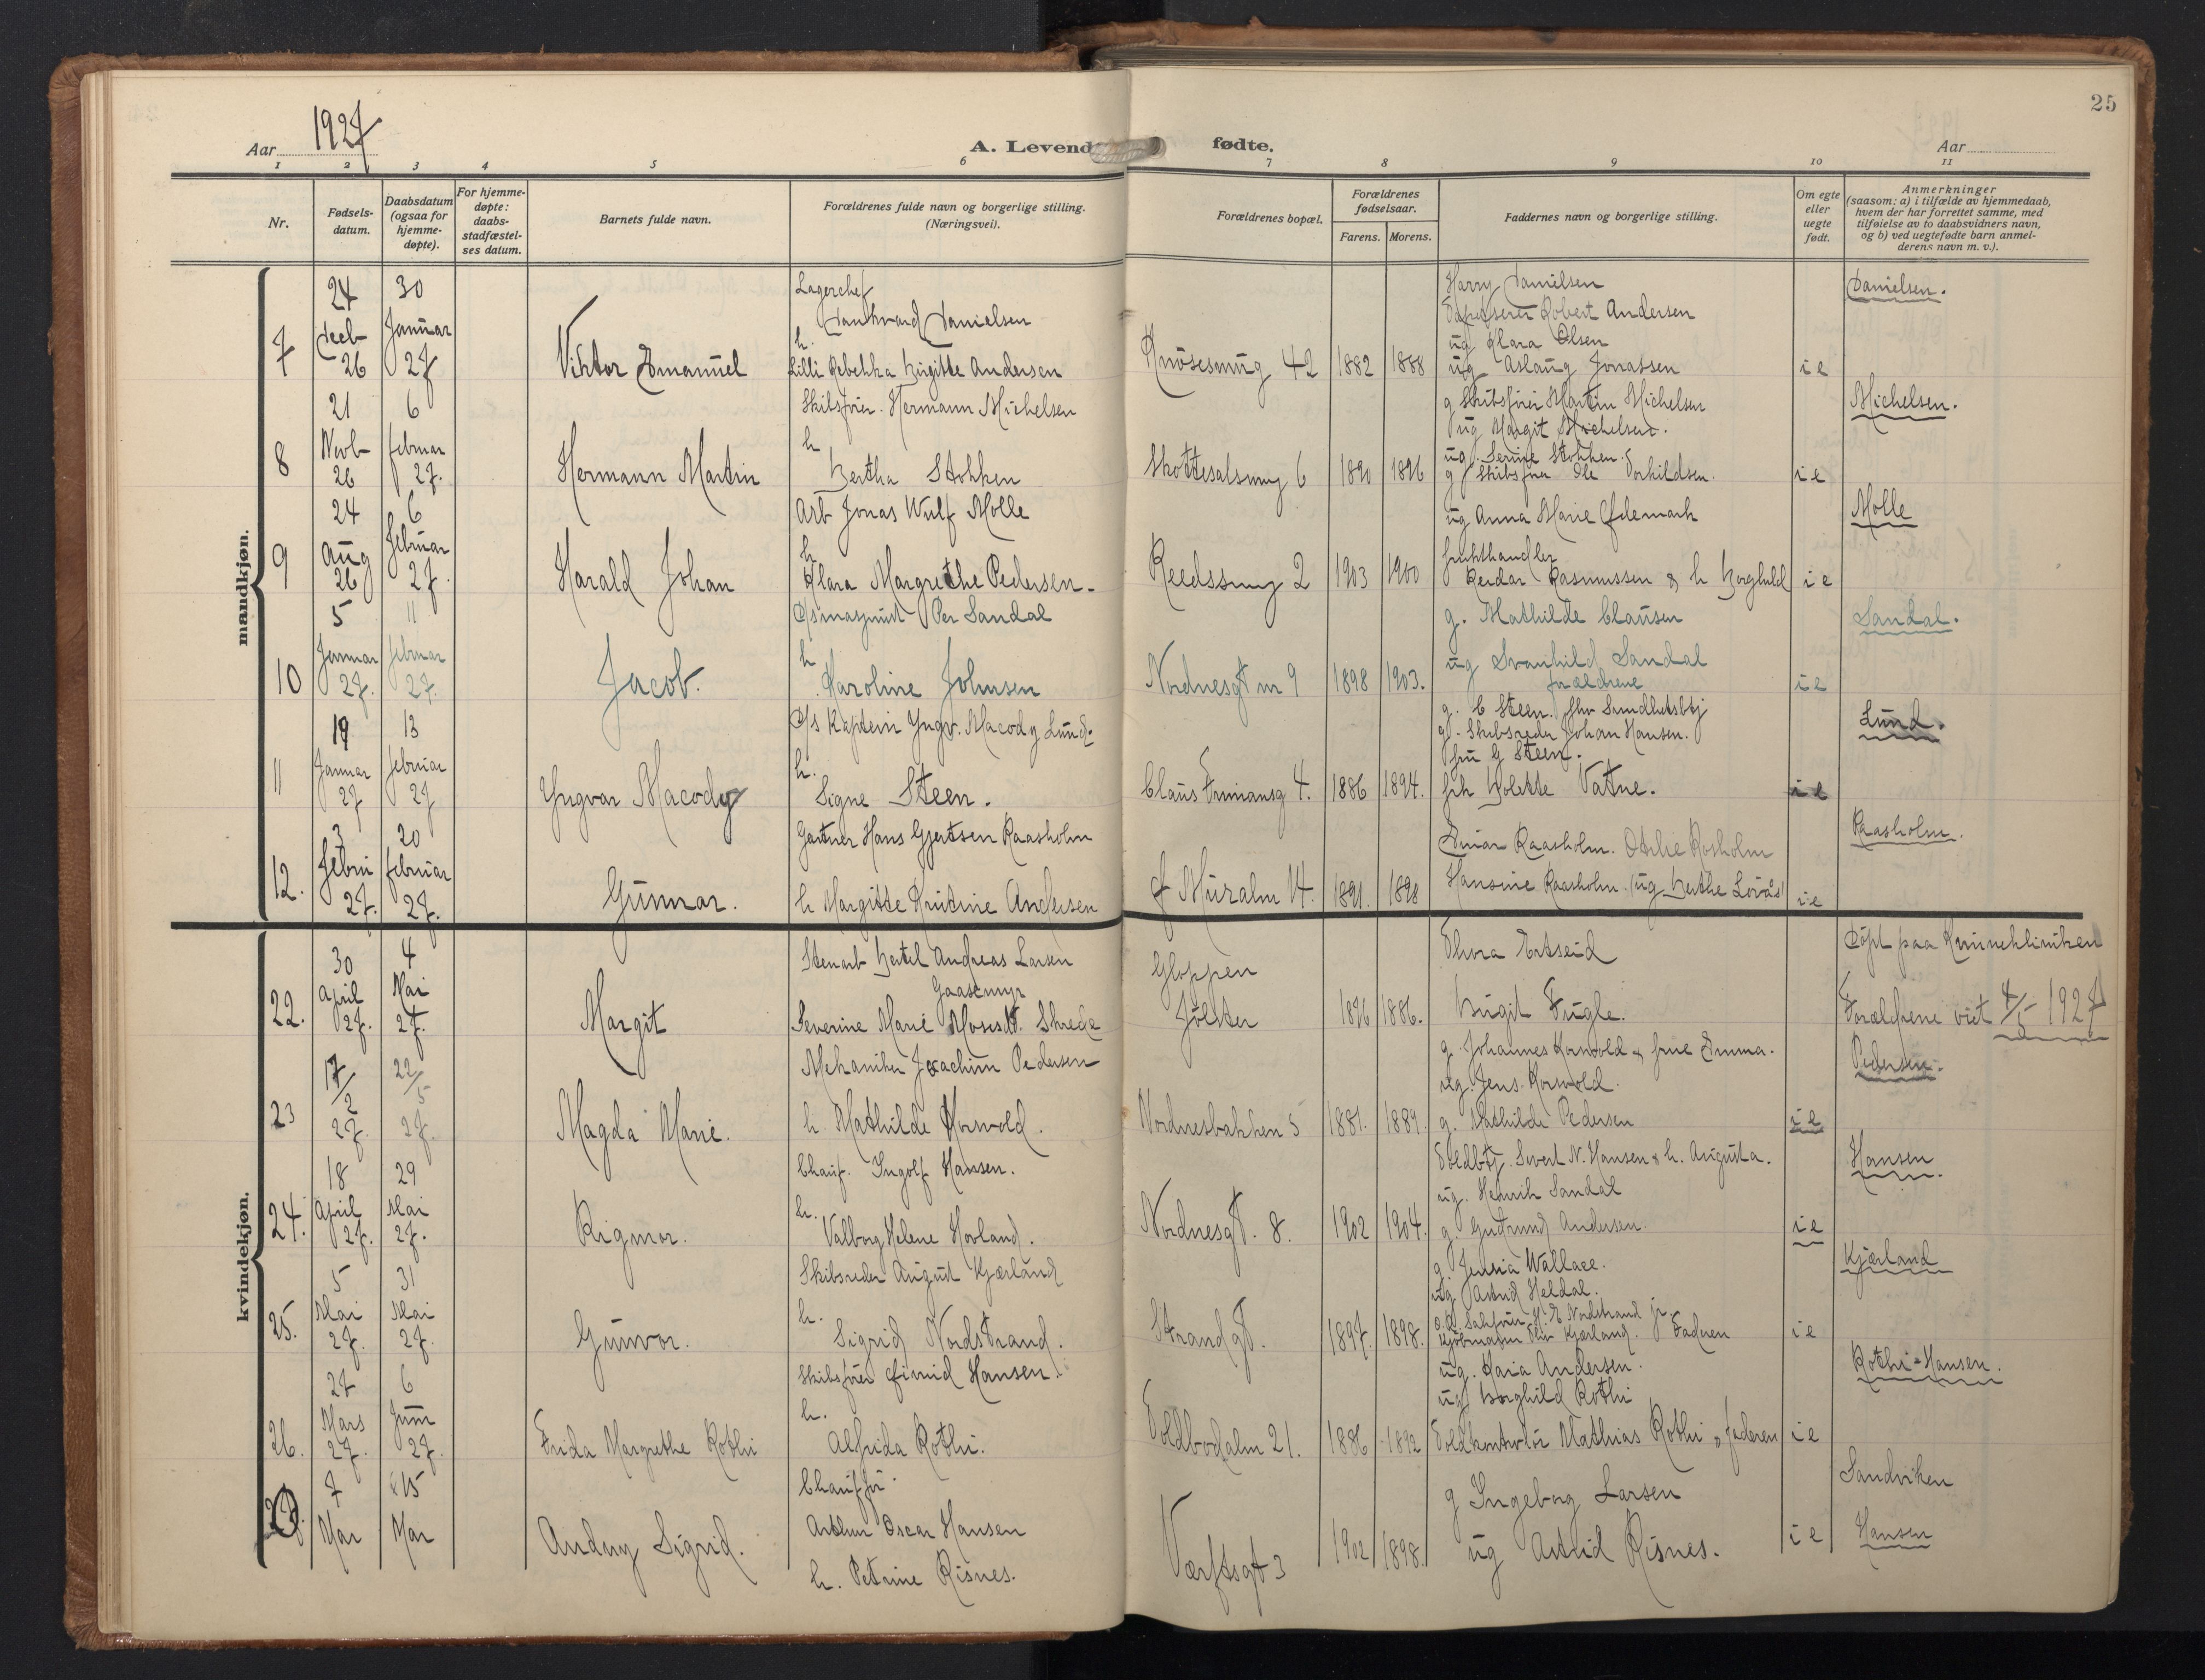 25
Aar 1927
A. Levend fødte.
Aar
1 2 3 4 5 6 7 8 9 10 11
Nr.
Fødsels-
datum.
Daabsdatum
(ogsaa for
hjemme-
døpte).
For hjemme-
døpte:
daabs-
stadfæstel-
ses datum.
Barnets fulde navn.
Forældrenes fulde navn og borgerlige stilling.
(Næringsvei).
Forældrenes bopæl.
Forældrenes
fødselsaar.
Farens. Morens.
Faddernes navn og borgerlige stilling.
Om egte
eller
uegte
født.
Anmerkninger
(saasom: a) i tilfælde av hjemmedaab,
hvem der har forrettet samme, med
tilføielse av to daabsvidners navn,
og b) ved uegtefødte barn anmel-
derens navn m. v.).
mandkjøn.
7
24
Decb
26
30
Januar
27
Viktor Emanuel
Lagerchef
Dankvard Danielsen
h.
Lilli Rebekka Birgitte Andersen
Knøsesmug 42
1882 1888
Harry Danielsen
Robert Andersen
ug Klara Olsen
ug Aslaug Jonassen
i e
Danielsen.
8
21
Novb
26
6
februar
27.
Hermann Martin
Skibsfører. Hermann Michelsen
h
Bertha Stokken
Skottesalsmug 6
1890 1896
g Skibsfører Martin Michelsen
ug Margit Michelsen.
ug. Serine Stokken.
g Skibsfører Ole Torkildsen.
i e
Michelsen.
9
24
Aug
26
6
februar
27.
Harald Johan
Arb Jonas Wulf Molle
h
Klara Margrethe Pedersen.
Reedssmug 2
1903 1900
ug Anna Marie Ødemark
frukthandler
Reidar Rasmussen & h Borghild
i e
Molle
10
5
Januar
27.
11
februar
27.
Jacob.
Per Sandal
h
Karoline Johnsen
Nordnesgt nr 9
1898 1903.
g. Mathilde Clausen
ug Svanhild Sandal
forældrene
i e
Sandal.
11
19
Januar
27
13
februar
27
Yngvar Macody
D/s Kaptein Yngv. Macody Lund.
h.
Signe Steen.
4.
1886 1894.
g. C Steen.
g. Skibsreder Johan Hansen.
fru G Steen.
frk Bolette Vatne.
i e
Lund.
12.
3
febru
27.
20
februar
27.
Gunnar.
Gartner Hans Gjertsen Raasholm
h Margitte Kristine Andersen
Muralm 14.
1891. 1898
Einar Raasholm. Oskar Rosholm
Hansine Raasholm. (ug Berthe Løvås)
i e
Raasholm.
kvindekjøn.
22.
30
April
27.
4
Mai
27.
Margit
Stenarb Bertel Andreas Larsen
Gaasemyr
Severine Marie Mosesdt. Skrede
Gloppen
Jølster
1896 1886.
Thora Ertseid
Birgit Fugle.
Døpt paa Kvindekliniken
Forældrene viet 4/5 1927
23
17/2
27.
22/5
27.
Magda Marie.
Mekaniker Joachim Pedersen
h. Mathilde Korsvold.
Nordnesbakken 5
1881. 1889.
g. Johannes Korsvold & frue Emma.
ug. Jens. Korsvold.
g. Mathilde Pedersen
i e
Pedersen.
24.
18
April
27.
29
Mai
27.
Rigmor.
Chauf. Ingolf Hansen.
h.
Valborg Helene Hovland.
Nordnesgt. 8.
1902 1904.
Toldbtj. Sivert N. Hansen & h. Augusta.
ug. Henrik Sandal
g. Gudrund Andersen.
i e
Hansen.
25.
5
Mai
27.
31
Mai
27.
Gunvor.
Skibsreder August Kjærland
h.
Sigrid Nordstrand.
Strandgt.
1897. 1898.
g. Jensia Wallace.
ug Astrid Heldal.
H. E Nordstrand jr.
Kjøbmann Kjærland. Faderen
i e
Kjærland
26.
27
Mars
27.
6
Juni
27.
Frida Margrethe Rothi
Skibsfører Eivind Hansen.
h.
Alfrida Rothi.
Toldbodalm 21.
1886 1892
ug. Maria Andersen.
ug Borghild Rothi
Toldkontrolør Mathias Rothi & faderen
i e
Rothi-Hansen.
27.
7
Mar
15
Mar
Andny Sigrid.
Chauffør
Arthur Oscar Hansen
h. Petrine Risnes.
Værftsgt 3
1902 1898.
g Ingeborg Larsen
ug Astrid Risnes.
i e
Sandviken
Hansen